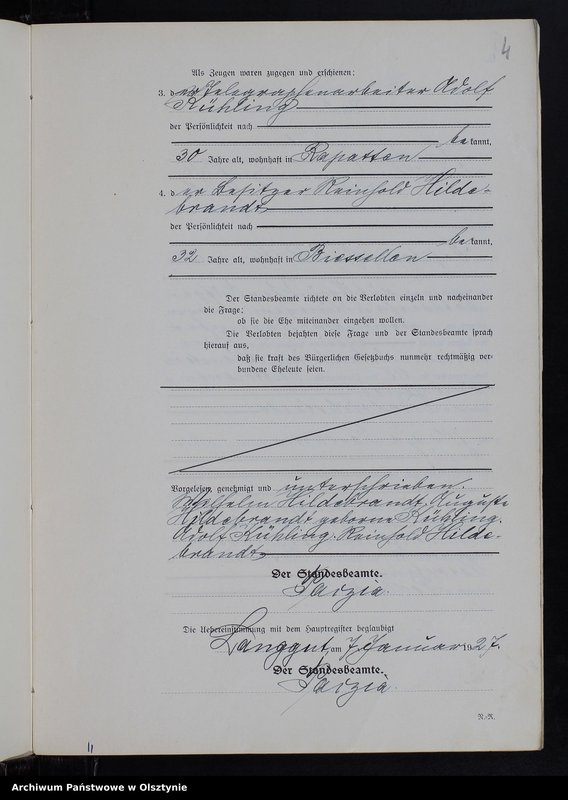 4
Als Zeugen waren zugegen und erschienen:
3. der Telegraphenarbeiter Adolf
Kühling
der Persönlichkeit nach
be kannt,
30 Jahre alt, wohnhaft in Rapatten
4. der Besitzer Reinhold Hilde-
brandt
der Persönlichkeit nach
be kannt,
32 Jahre alt, wohnhaft in Biessellen
Der Standesbeamte richtete an die Verlobten einzeln und nacheinander
die Frage:
ob sie die Ehe miteinander eingehen wollen.
Die Verlobten bejahten diese Frage und der Standesbeamte sprach
hierauf aus,
daß sie kraft des Bürgerlichen Gesetzbuchs nunmehr rechtmäßig ver-
bundene Eheleute seien.
Vorgelesen, genehmigt und unterschrieben.
Wilhelm Hildebrandt. Auguste
Hildebrandt geborne Kühling.
Adolf Kühling. Reinhold Hilde-
brandt
Der Standesbeamte.
Die Uebereinstimmung mit dem Hauptregister beglaubigt
Langgut, am 7. Januar 1927.
Der Standesbeamte.
R.-R.
11
Archiwum Państwowe w Olsztynie